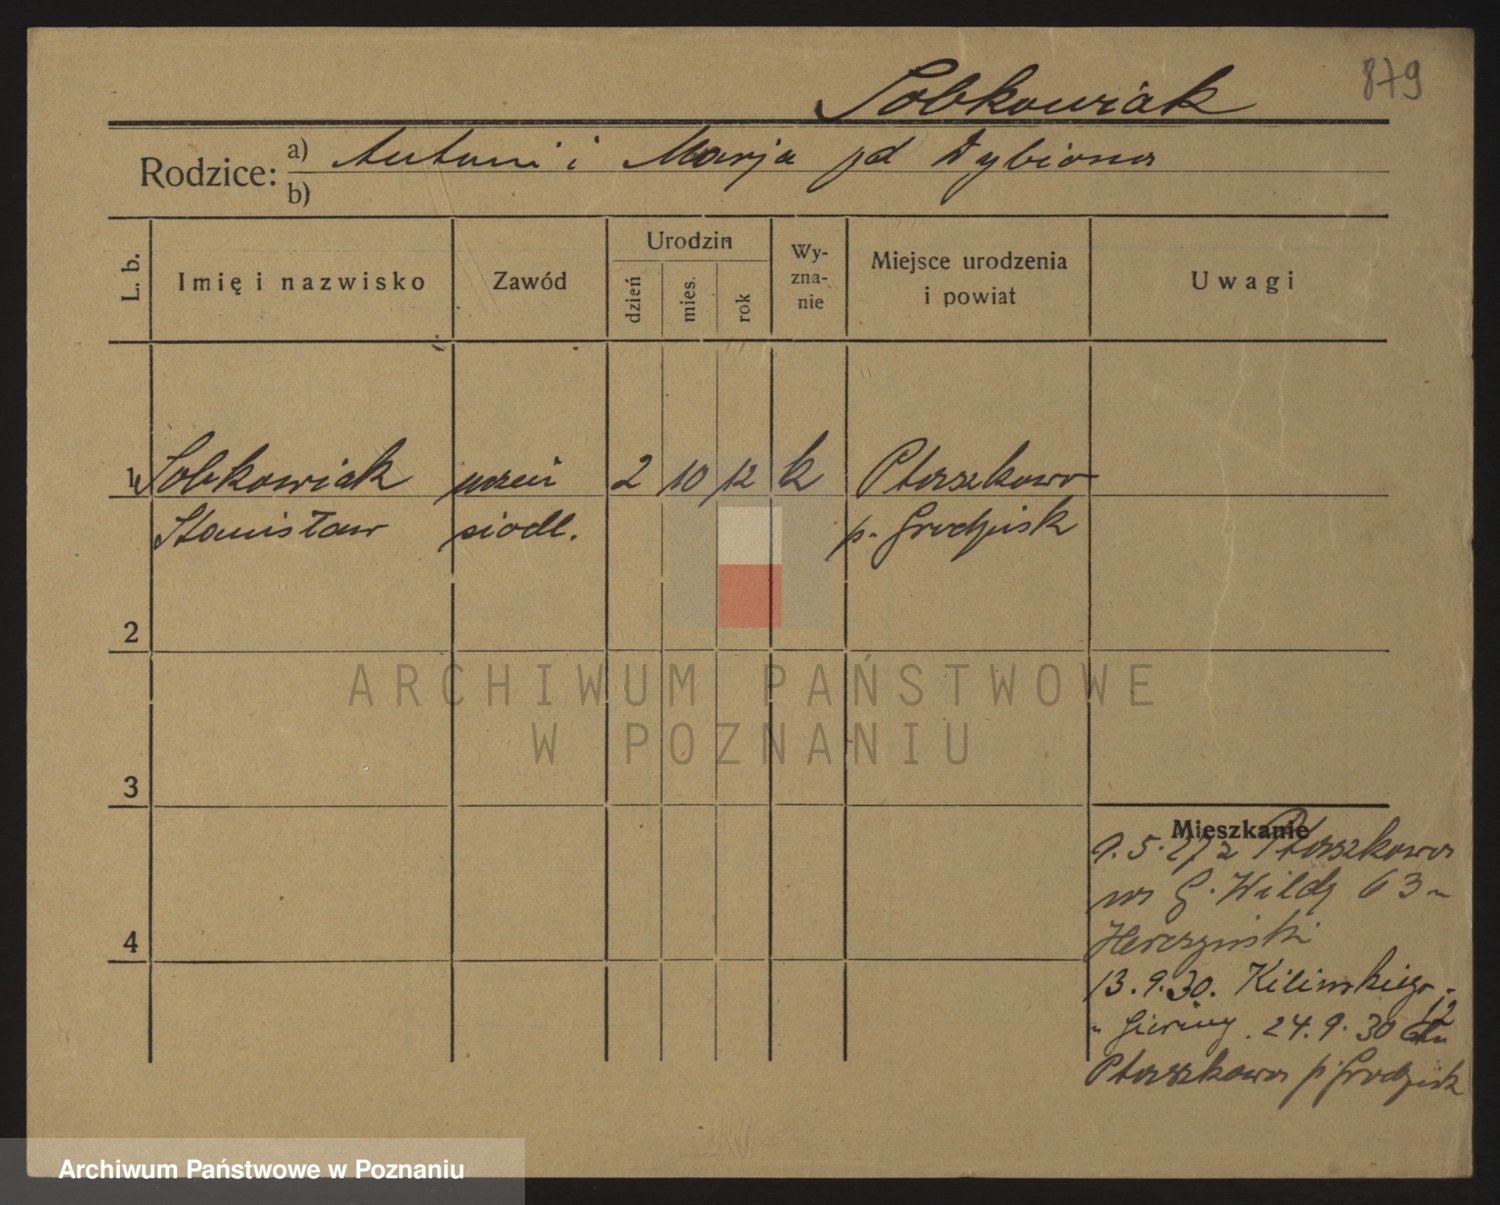 879
Sobkowiak
Rodzice: a) Antoni i Marja pd Dybiona
b)
L. b.
Imię i nazwisko
Zawód
Urodzin
dzień
mies.
rok
Wy-
zna-
nie
Miejsce urodzenia
i powiat
Uwagi
1 Sobkowiak uczeń 2 10 12 k Ptaszkowo
Stanisław siodl. p. Grodzisk
2
ARCHIWUM PAŃSTWOWE
W POZNANIU
3
4
Mieszkanie
9. 5. 27 z Ptaszkowa
na G. Wildę 63
13. 9. 30. Kilińskiego 12
24. 9. 30 do
Ptaszkowa p. Grodzisk
Archiwum Państwowe w Poznaniu